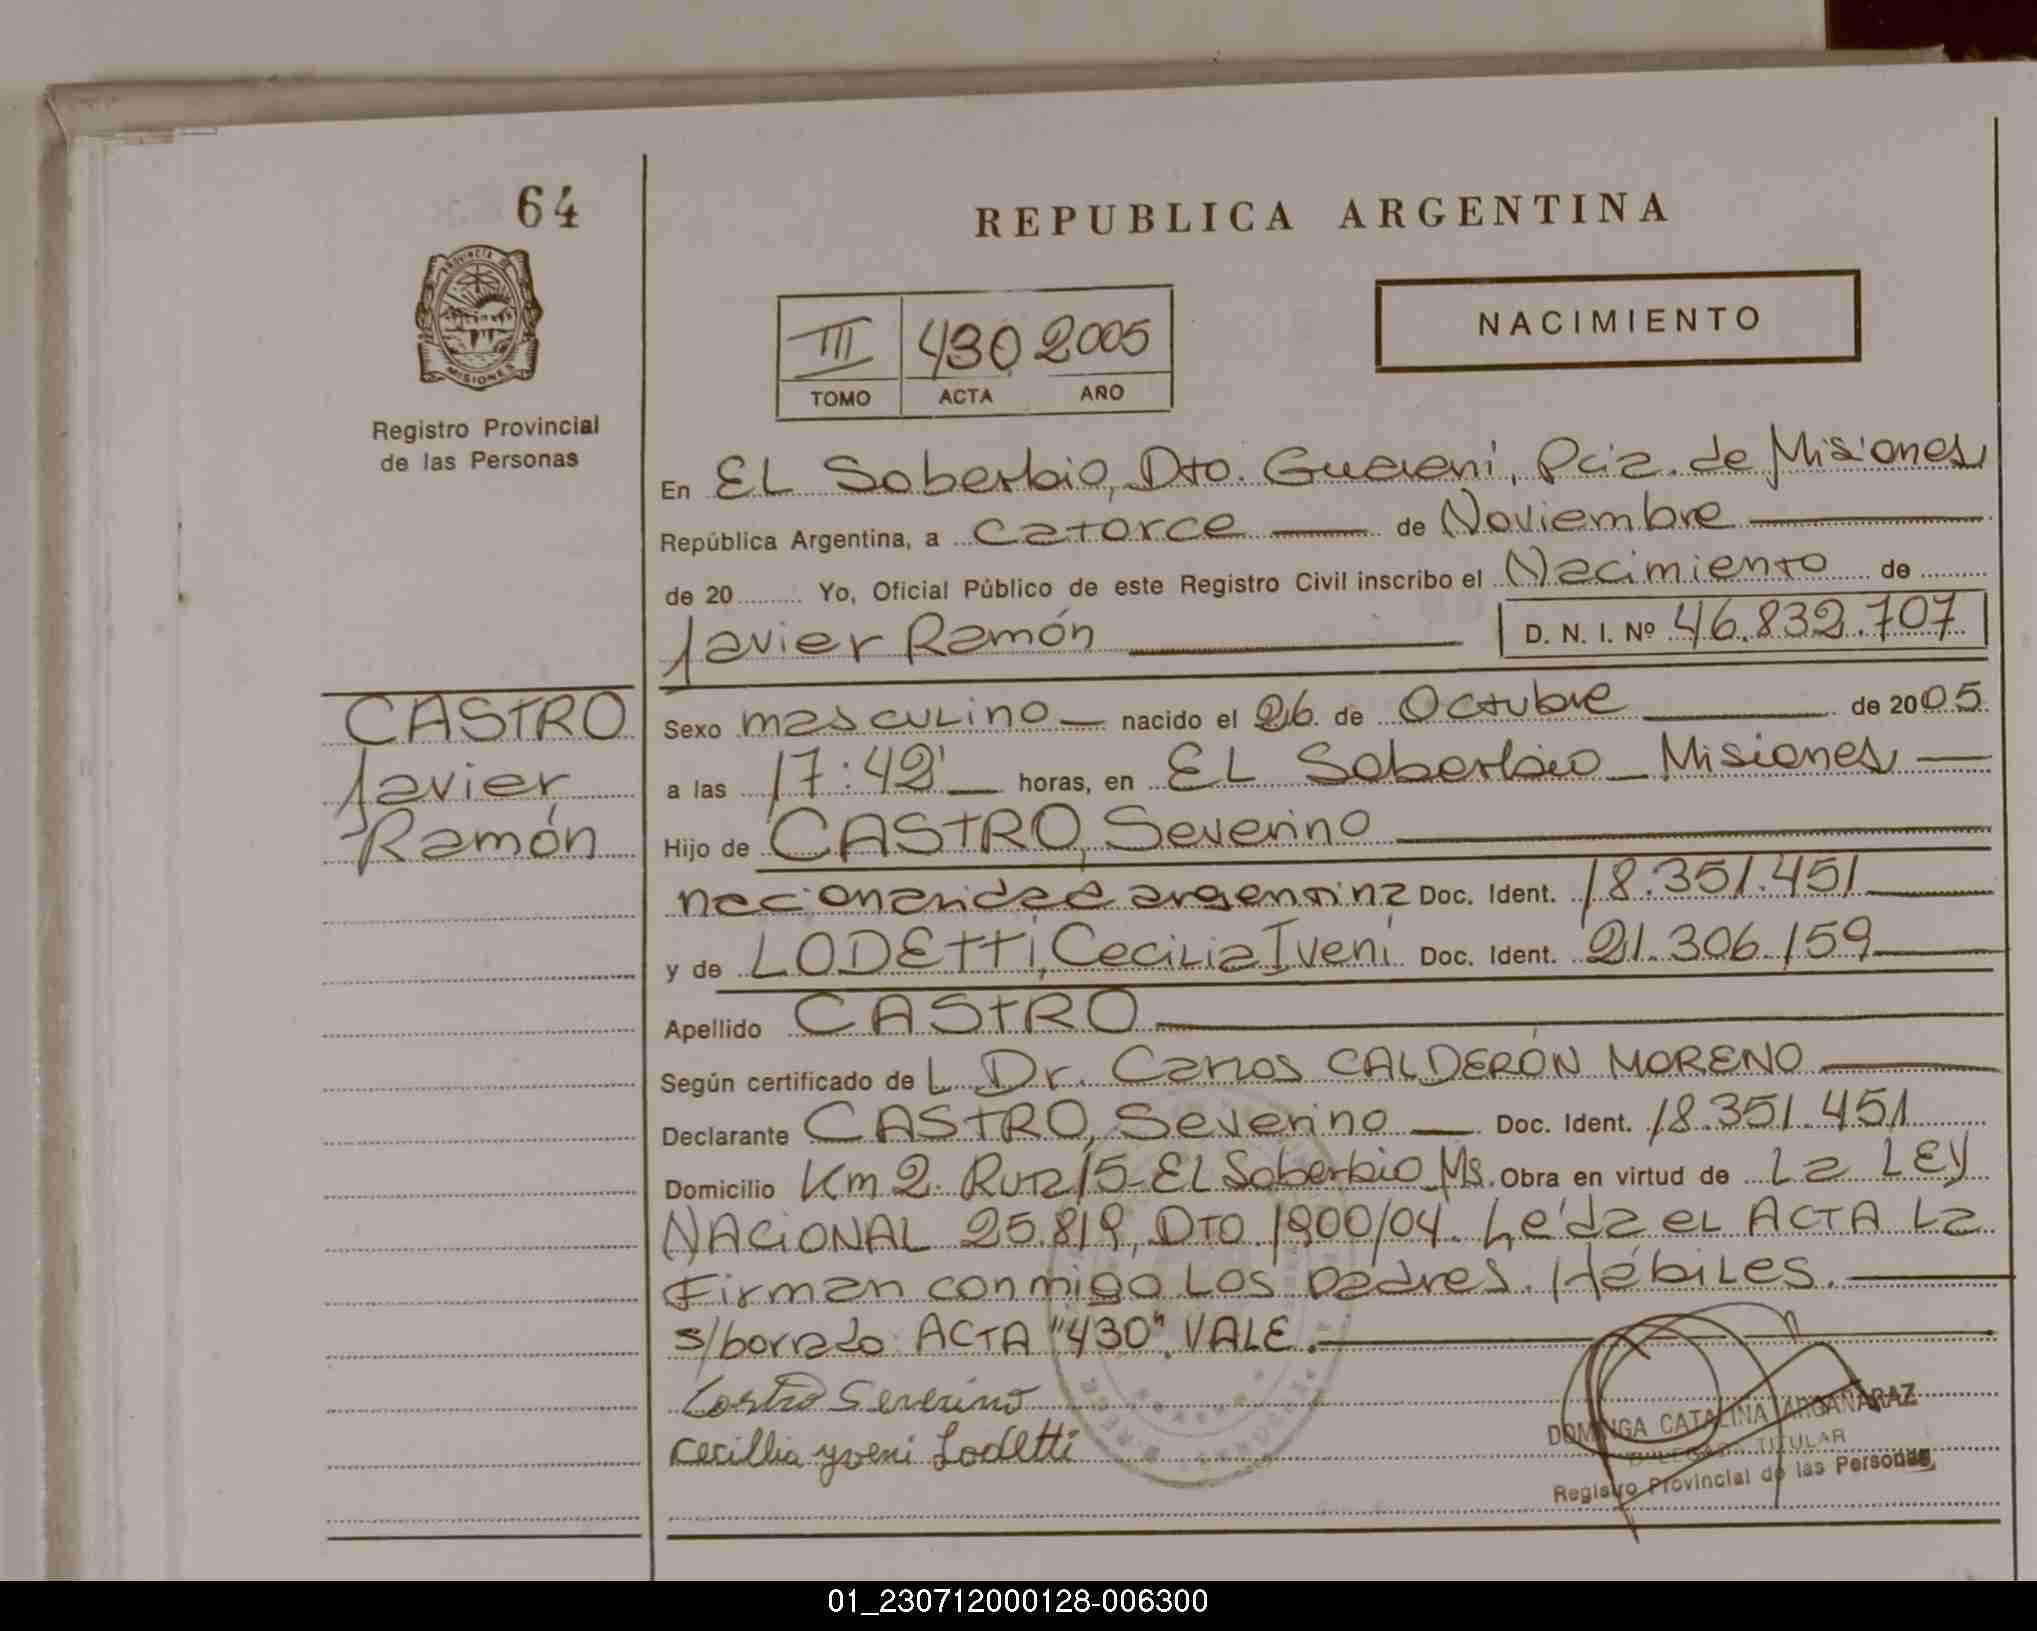 64
PROVINCIA DE
MISIONES
Registro Provincial
de las Personas
REPUBLICA ARGENTINA
III 430 2005
TOMO ACTA AÑO
NACIMIENTO
En EL Soberbio, Dto. Guaraní, Pcia. de Misiones
República Argentina, a Catorce de Noviembre
de 20 Yo, Oficial Público de este Registro Civil inscribo el Nacimiento de
Javier Ramón D. N. I. Nº 46.832.707
CASTRO
Javier
Ramón
Sexo masculino nacido el 26 de Octubre de 2005
a las 17:42' horas, en EL Soberbio - Misiones
Hijo de CASTRO, Severino
nacionalidad argentina Doc. Ident. 18.351.451
y de LODETTI, Cecilia Iveni Doc. Ident. 21.306.159
Apellido CASTRO
Según certificado de L Dr. Carlos CALDERÓN MORENO
Declarante CASTRO, Severino Doc. Ident. 18.351.451
Domicilio Km 2. Ruta 15 - EL Soberbio Ms. Obra en virtud de La LEY
NACIONAL 25.819, DTO 1900/04. Leída el ACTA La
Firman conmigo Los padres. Hábiles.
s/borrado: ACTA "430". VALE.
Castro Severino
Cecillia yveni Lodetti
DOMINGA CATALINA ARGAÑARAZ
TITULAR
Registro Provincial de las Personas
01_230712000128-006300